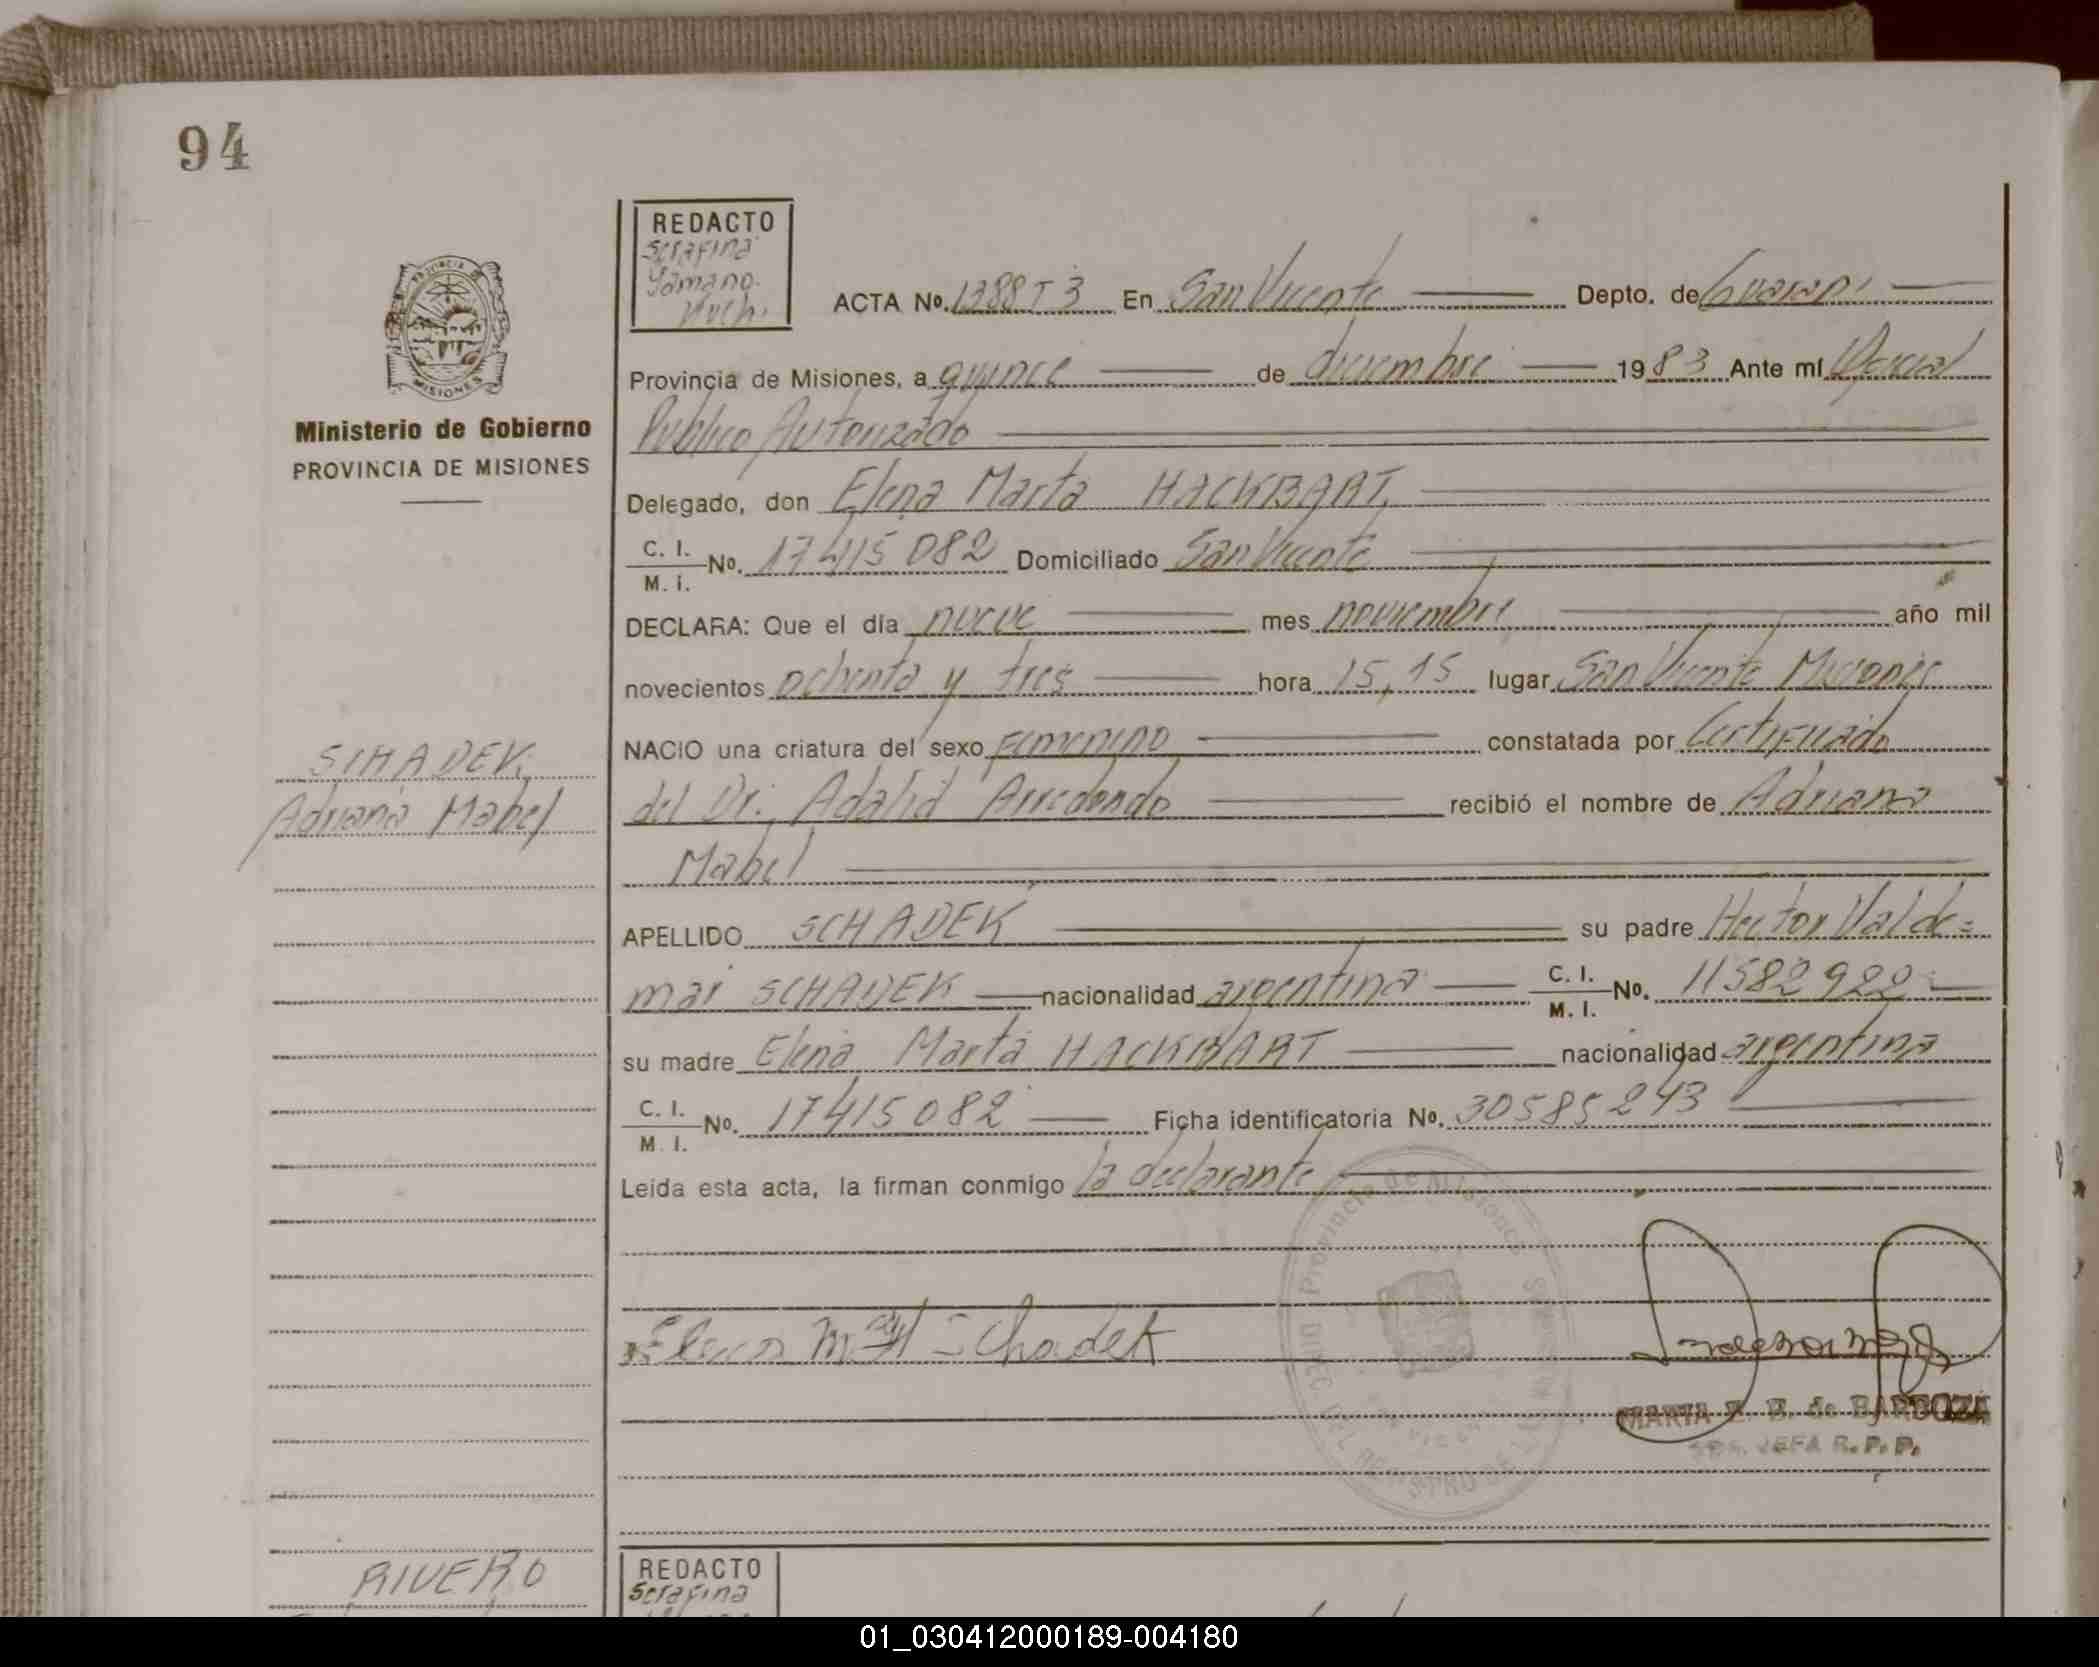 94
REDACTO
Serafina
Yamano.
ACTA Nº. 1388 T 3 En San Vicente Depto. de Guarani
Provincia de Misiones, a quince de diciembre 1983 Ante mí Oficial
Publico Autorizado
PROVINCIA DE MISIONES
Ministerio de Gobierno
PROVINCIA DE MISIONES
Delegado, don Elena Marta HACKBART,
C. I. M. I. No. 17415082 Domiciliado San Vicente
DECLARA: Que el día nueve mes noviembre año mil
novecientos ochenta y tres hora 15,15 lugar San Vicente Misiones
SCHADEK,
NACIO una criatura del sexo femenino constatada por Certificado
Adriana Mabel
del Dr. Adalid Arredondo recibió el nombre de Adriana
Mabel
APELLIDO SCHADEK su padre Hector Valde=
mar SCHADEK nacionalidad argentina C. I. M. I. No. 11582922
su madre Elena Marta HACKBART nacionalidad argentina
C. I. M. I. No. 17415082 Ficha identificatoria No. 30585243
Leída esta acta, la firman conmigo la declarante
Provincia de Misiones
Elena M. H Schadek
MARTA E. B. de BARBOZA
JEFA R. P. P.
RIVERO
REDACTO
Serafina
01_030412000189-004180